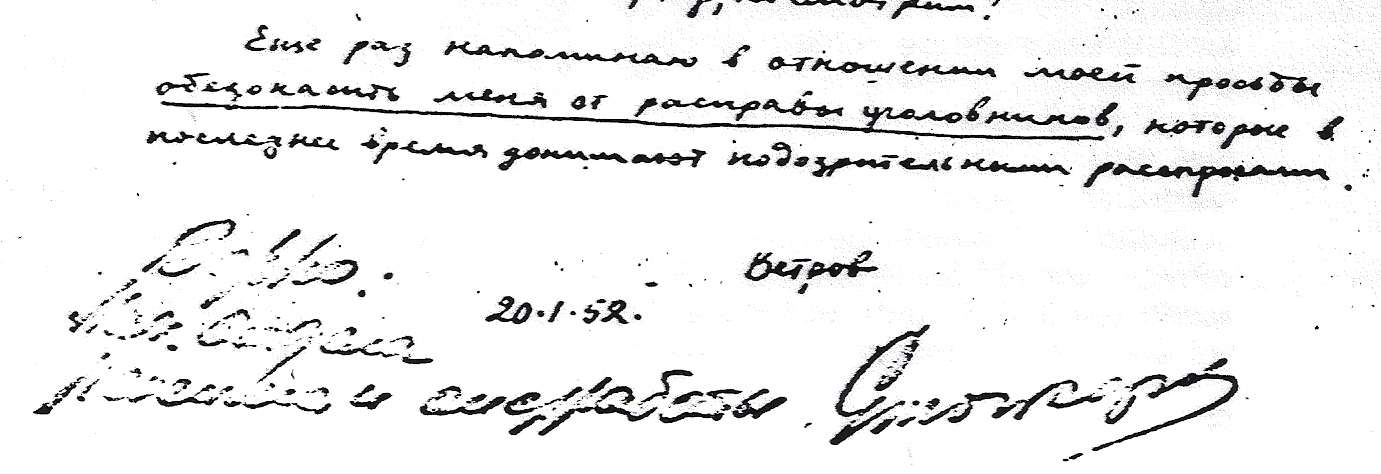 Еще раз напоминаю в отношении моей просьбы
обезопасить меня от расправы уголовников, которые в
последнее время донимают подозрительными расспросами.
Ветров
20.1.52.
Верно:
Нач. Отдела
режима и оперработы